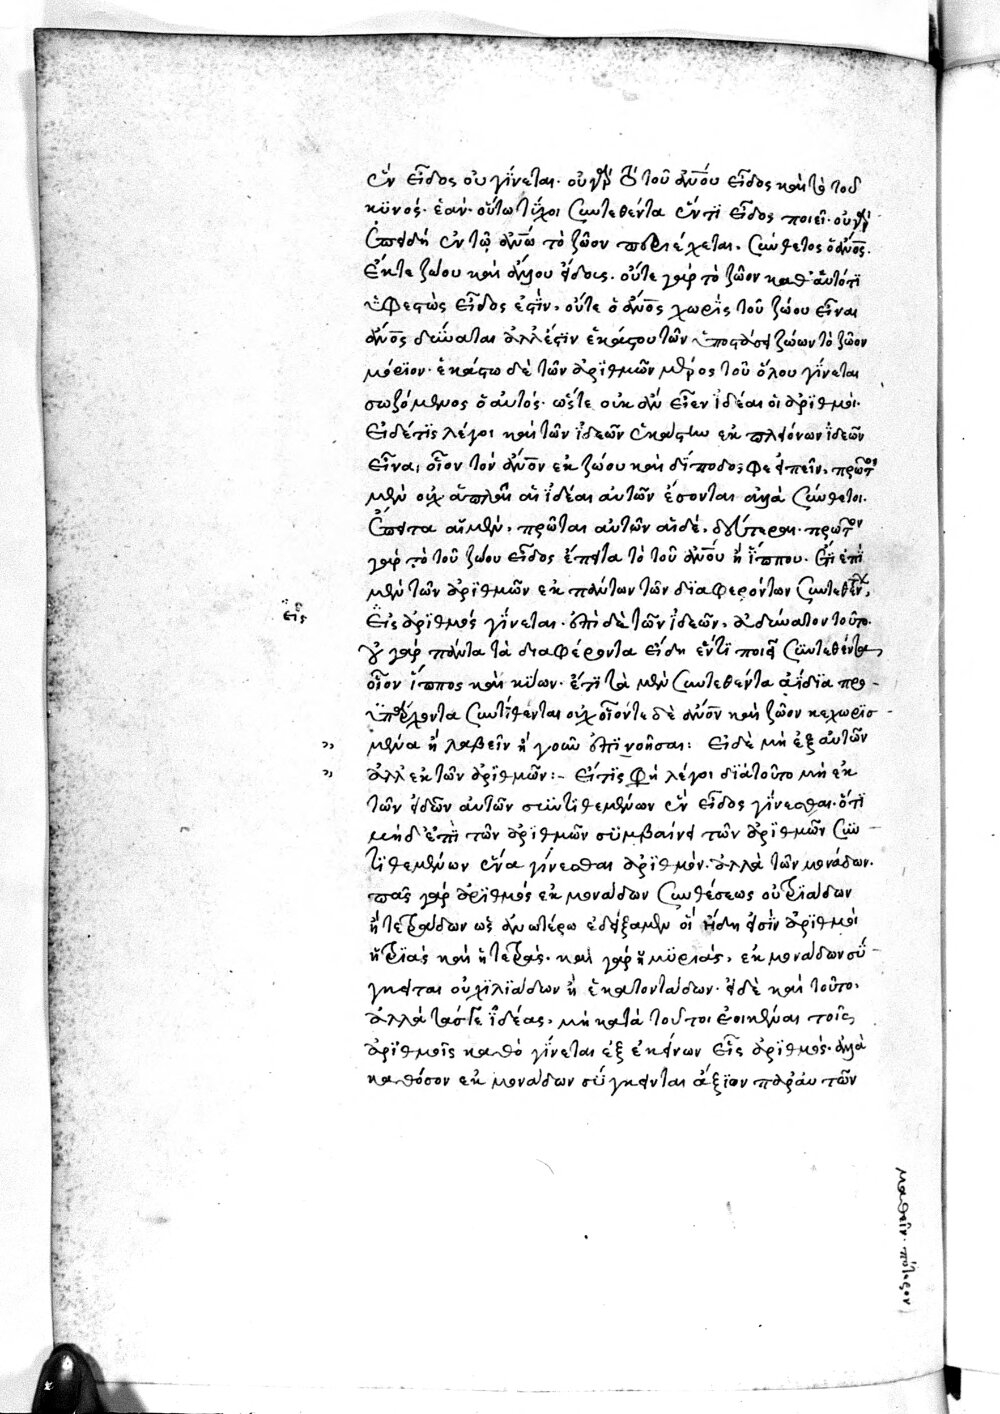 ἓν εἶδος οὐ γίνεται· οὐ γὰρ τὸ τοῦ ἀνου εἶδος καὶ τὸ τοῦ
κυνός· ἐὰν οὕτω τύχοι συντεθέντα ἕν τι εἶδος ποιεῖ· οὐ γὰρ
ἐπειδὴ ἐν τῶ ἀνω τὸ ζῶον περιέχεται, σύνθετος ὁ ἀνος.
ἔκ τε ζώου καὶ ἄλλου εἴδους. οὔτε γὰρ τὸ ζῶον καθ' αὑτό τι
ὑφεστὼς εἶδος ἐστὶν, οὔτε ὁ ἀνος χωρὶς τοῦ ζώου εἶναι
ἀνος δύναται ἀλλ' ἔστιν ἑκάστου τῶν ζώων τὸ ζῶον
μόριον· ἑκάστω δὲ τῶν ἀριθμῶν μέρος τοῦ ὅλου γίνεται
σωζόμενος ὁ αὐτός· ὥστε οὐκ ἂν εἶεν ἰδέαι οἱ ἀριθμοί.
Εἰ δέ τις λέγοι καὶ τῶν ἰδεῶν ἑκάστην ἐκ πλειόνων ἰδεῶν
εἶναι, οἷον τὸν ἀνον ἐκ ζώου καὶ δίποδος φε εἰπεῖν, πρῶτον
μὲν οὐχ ἁπλαῖ αἱ ἰδέαι αὐτῶν ἔσονται ἀλλὰ σύνθετοι.
ἔπειτα αἱ μὲν, πρῶται αὐτῶν αἱ δὲ, δεύτεραι· πρῶτον
γὰρ τὸ τοῦ ζώου εἶδος ἔπειτα τὸ τοῦ ἀνου ἢ ἵππου. ἔτι ἐπὶ
μὲν τῶν ἀριθμῶν ἐκ πάντων τῶν διαφερόντων συντεθέντων,
εἷς ἀριθμός γίνεται· ἐπὶ δὲ τῶν ἰδεῶν, ἀδύνατον τοῦτο.
οὐ γὰρ πάντα τὰ διαφέροντα εἴδη ἕν τι ποιεῖ συντεθέντα,
οἷον ἵππος καὶ κύων. ἔτι τὰ μὲν συντεθέντα ἀΐδια προ-
ϋπάρχοντα συντίθενται οὐχ οἷόντε δὲ ἀνον καὶ ζῶον κεχωρισ-
μένα ἢ λαβεῖν ἢ γοῦν ἐπινοῆσαι: εἰ δὲ μὴ ἐξ αὐτῶν
ἀλλ' ἐκ τῶν ἀριθμῶν:– Εἴ τις φη λέγοι διὰ τοῦτο μὴ ἐκ
τῶν εἰδῶν αὐτῶν συντιθεμένων ἓν εἶδος γίνεσθαι· ὅτι
μὴ δ' ἐπὶ τῶν ἀριθμῶν συμβαίνει τῶν ἀριθμῶν συν-
τιθεμένων ἕνα γίνεσθαι ἀριθμόν· ἀλλὰ τῶν μονάδων.
πᾶς γὰρ ἀριθμός ἐκ μονάδων συνθέσεως οὐ τριάδων
ἢ τετράδων ὡς ἀνωτέρω ἐδείξαμεν οἱ ἤδη εἰσὶν ἀριθμοὶ
ἡ τριὰς καὶ ἡ τετράς· καὶ γὰρ ἡ μυριάς, ἐκ μονάδων σύ-
γκειται οὐ χιλιάδων ἢ ἑκατοντάδων. εἰ δὲ καὶ τοῦτο,
ἀλλὰ τάς γε ἰδέας, μὴ κατὰ τοῦτο ἐοικέναι τοῖς
ἀριθμοῖς καθὸ γίνεται ἐξ ἐκείνων εἷς ἀριθμός· ἀλλὰ
καθόσον ἐκ μονάδων σύγκεινται ἄξιον παρ' αὐτῶν
εἷς
μαθεῖν· πότερον